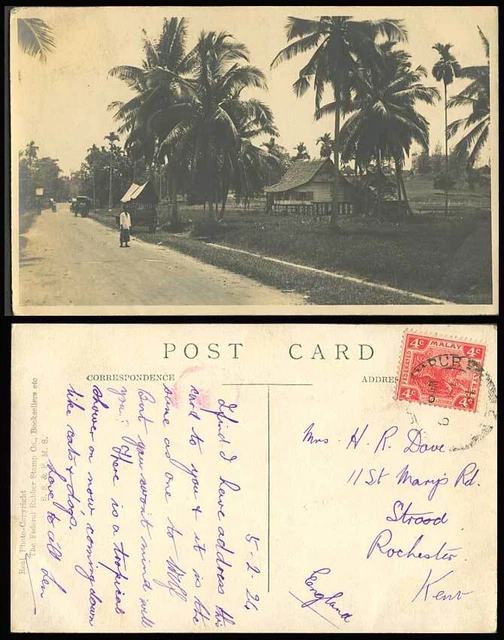 POST CARD
CORRESPONDENCE
ADDRES
FEDERATED MALAY
4c 4c
4c 4c
5.2.26
I find I have address this
card to you & it is the
same as one to
but you wont mind will
you. There is a tropical
shower on now coming down
like cats & dogs.
love to all Len
Mrs. H. R. Dave.
11 St Mary's Rd.
Strood.
Rochester.
Kent
England
Real Photo-Copyright
The Federal Rubber Stamp Co., Booksellers etc
F. M. S.